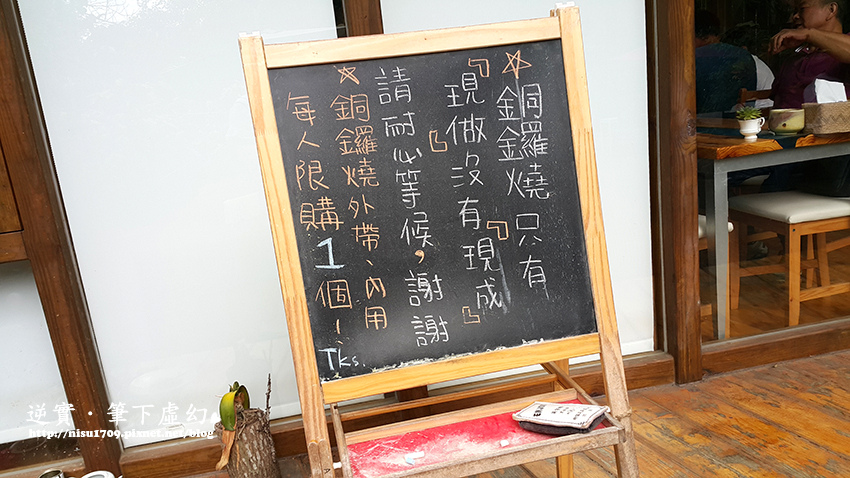 ☆銅鑼燒只有
『現做』沒有『現成』
請耐心等候，謝謝
☆銅鑼燒外帶、內用
每人限購1個!
Tks.
逆實・筆下虛幻
http://nisu1709.pixnet.net/blog